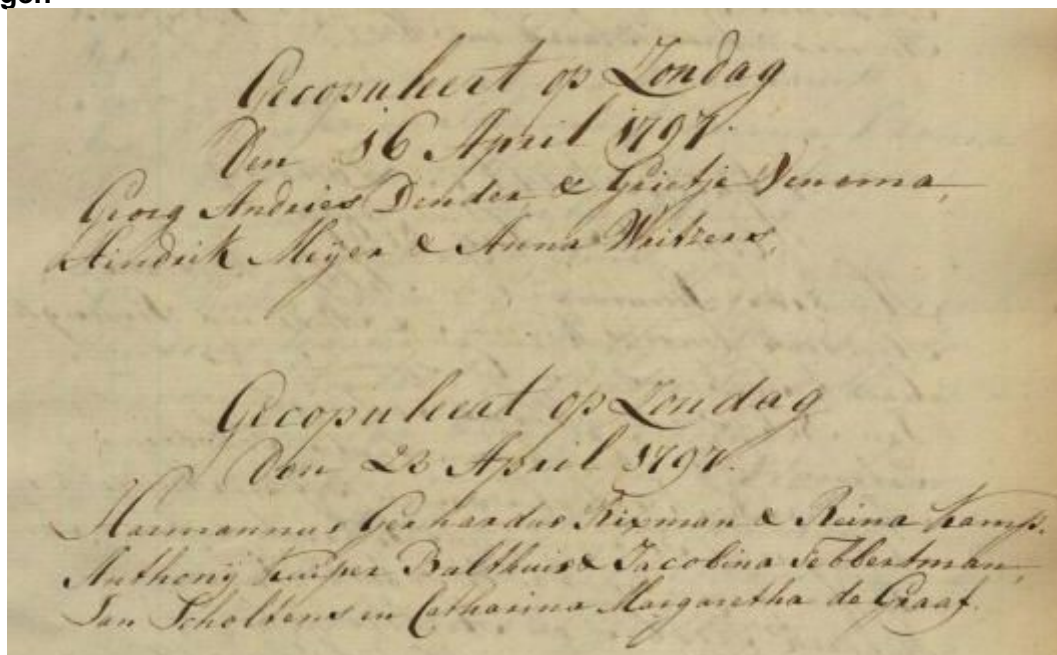 Gecopuleert op Zondag
Den 16 April 1797.
Georg Andries Dender & Grietje Venema,
Hindrik Meijer & Anna Writzers,
Gecopuleert op Zondag
Den 23 April 1797.
Harmannus Gerhardus Fixman & Reina Kamp.
Anthonij Kuiper Balthuis & Jacobina Tebbertman,
Jan Scholtens en Catharina Margaretha de Graaf.